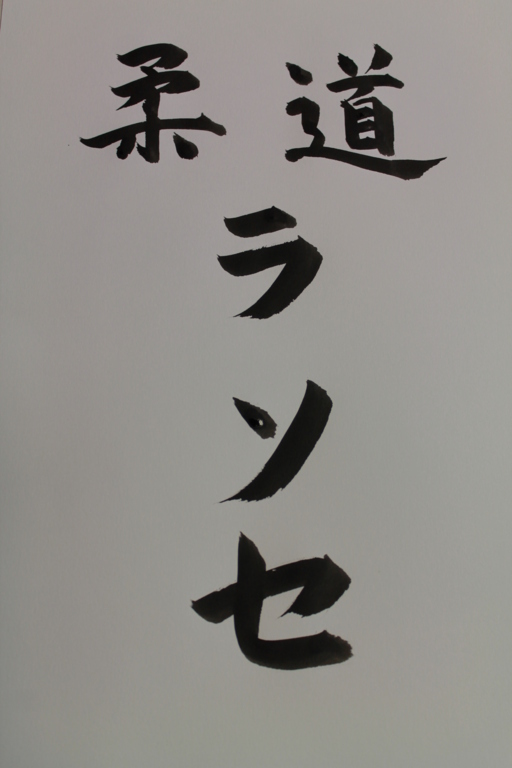 柔道
ラ
ソ
セ